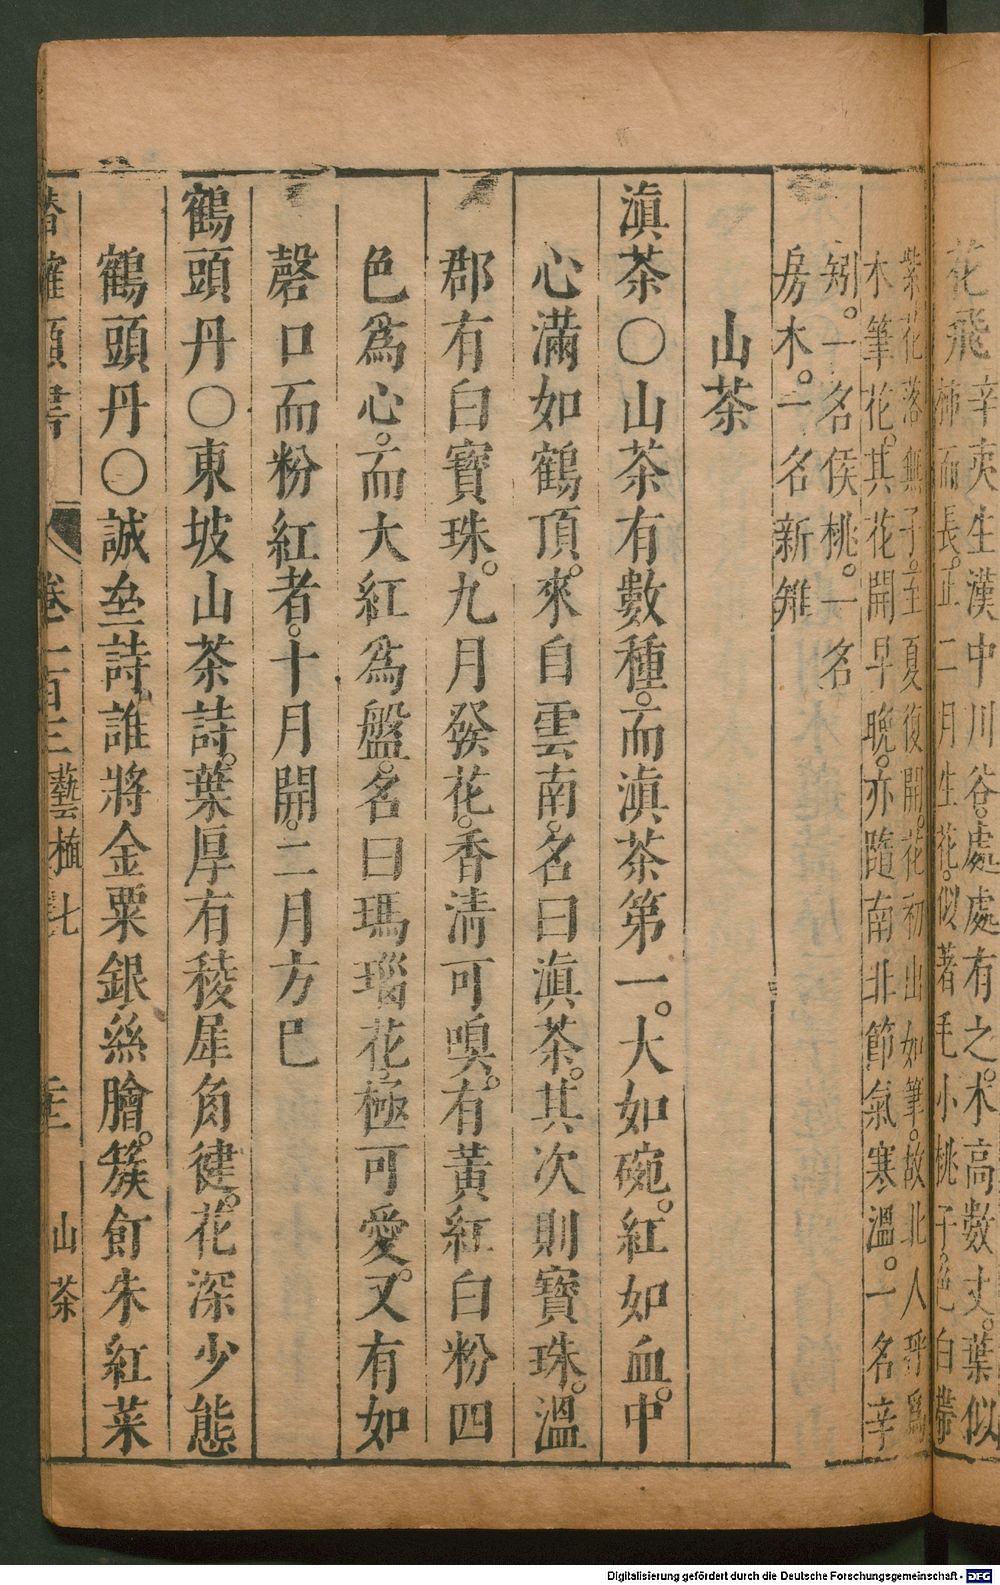 花飛 辛夷生漢中川谷。處處有之。木高數丈。葉似
柹而長。正二月生花。似著毛小桃子。色白帶
紫。花落無子。至夏復開。花初出如筆。故北人呼爲
木筆花。其花開早晚。亦隨南北節氣寒溫。一名辛
矧。一名侯桃。一名
房木。一名新雉
山茶
滇茶〇山茶有數種。而滇茶第一。大如碗。紅如血。中
心滿如鶴頂。來自雲南。名曰滇茶。其次則寶珠。溫
郡有白寶珠。九月發花。香清可嗅。有黃紅白粉四
色爲心。而大紅爲盤。名曰瑪瑙花。極可愛。又有如
磬口而粉紅者。十月開。二月方巳
鶴頭丹〇東坡山茶詩。葉厚有稜犀角健。花深少態
鶴頭丹〇誠齋詩。誰將金粟銀絲膾。簇飣朱紅菜
潛確類書 卷一百三 藝植七 山茶
Digitalisierung gefördert durch die Deutsche Forschungsgemeinschaft - DFG